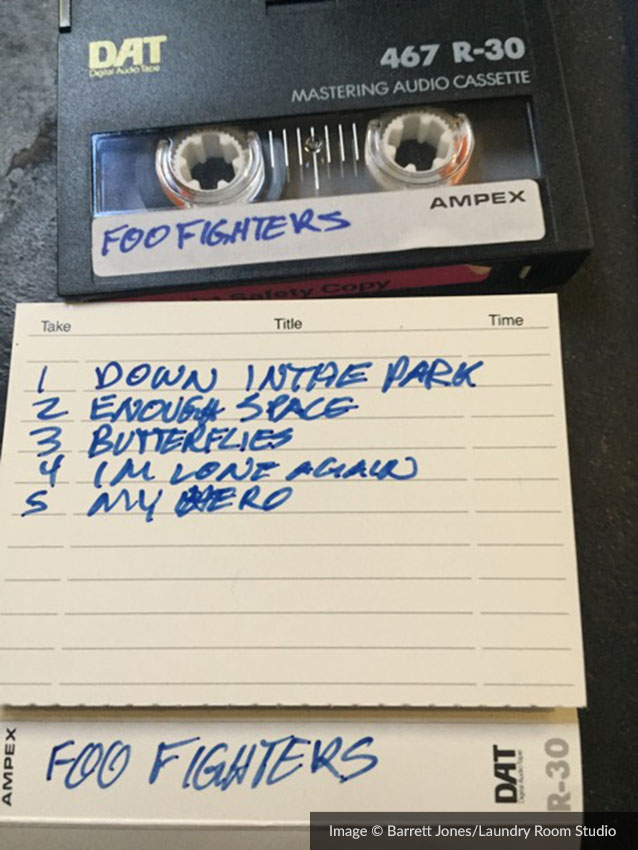 DAT
Digital Audio Tape
467 R-30
MASTERING AUDIO CASSETTE
AMPEX
FOO FIGHTERS
Safety Copy
Take Title Time
1 DOWN IN THE PARK
2 ENOUGH SPACE
3 BUTTERFLIES
4 IM LONE AGAIN
5 MY HERO
AMPEX
FOO FIGHTERS
DAT
Digital Audio Tape
R-30
Image © Barrett Jones/Laundry Room Studio